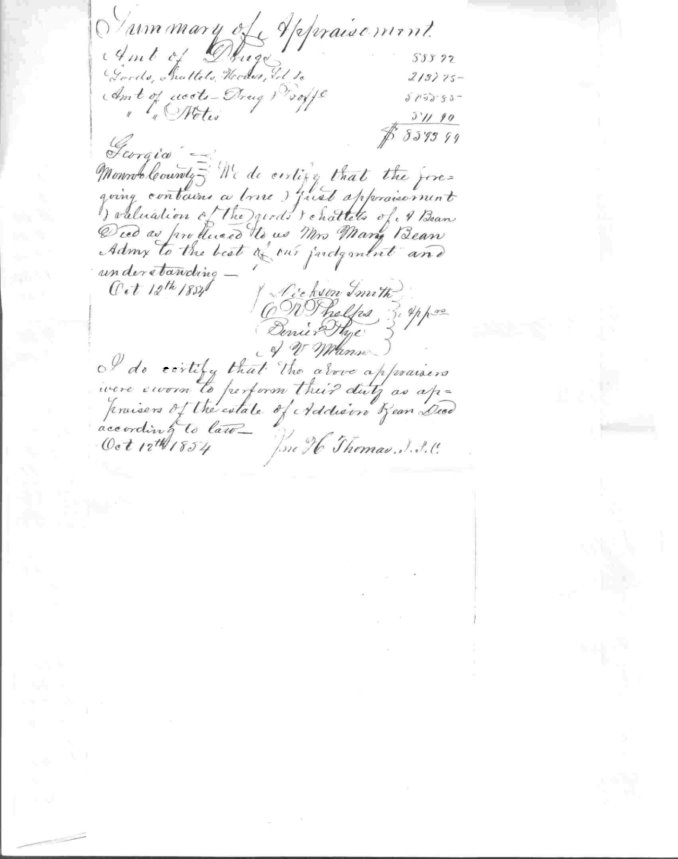 Summary of Appraisement.
Amt of Drugs 588 22
Goods, chattels, House,
Amt of accts — Drug
" " Notes 511 90
$ 8393 99
Georgia
Monroe County We do certify that the fore=
going contains a true & just appraisement
& valuation of the goods & chattels of A Bean
Decd as produced to us Mrs Mary Bean
Admx to the best of our judgment and
understanding —
Oct 12th 1854
Nickson Smith
C R Phelps
A V Mann
I do certify that the above appraisers
were sworn to perform their duty as ap=
praisers of the estate of Addison Bean Decd
according to law —
Oct 12th 1854 Jno H Thomas. J.I.C.